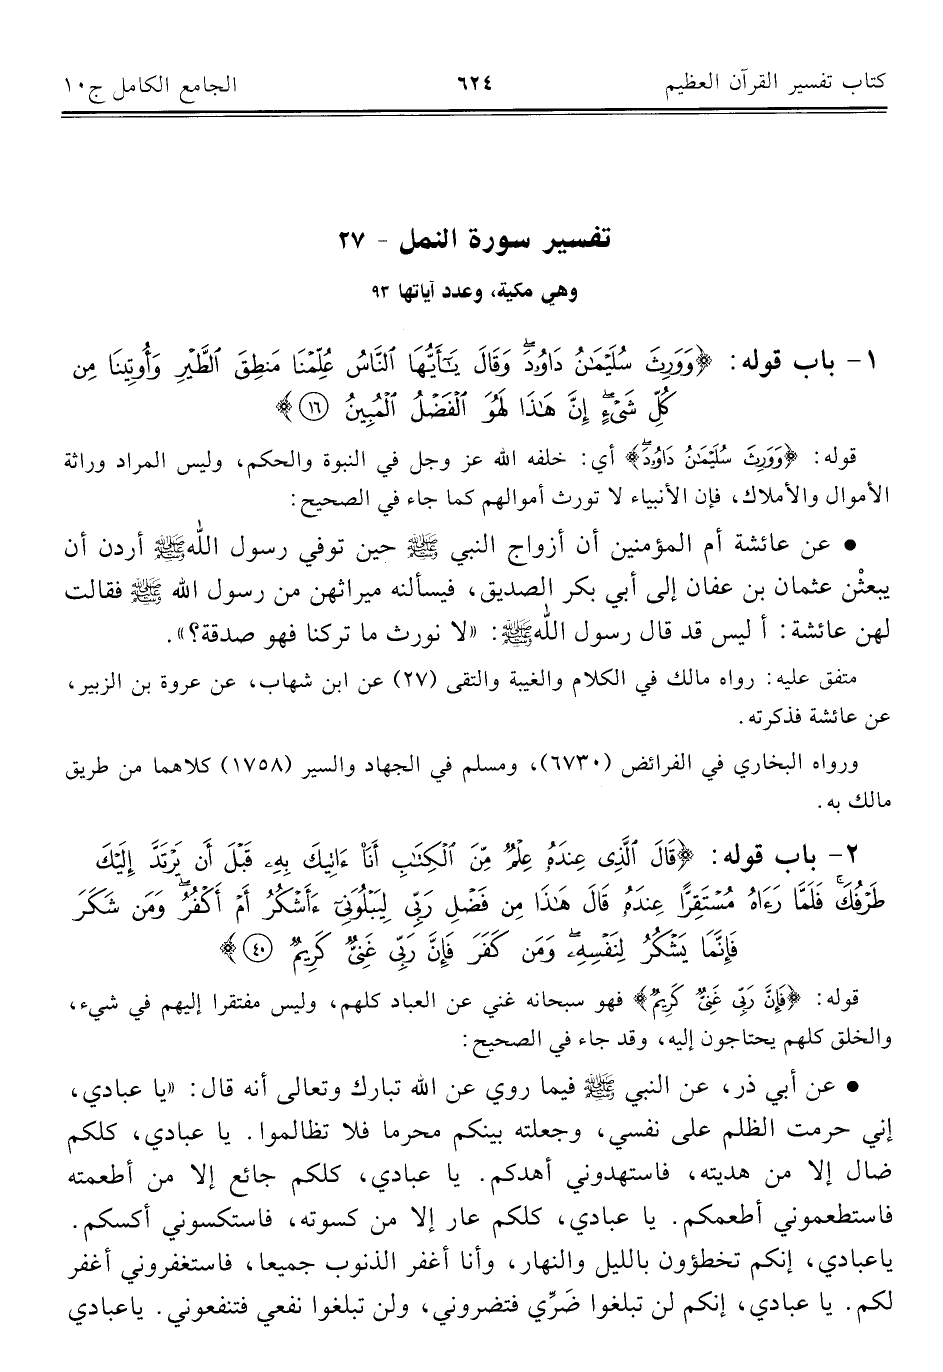 كتاب تفسير القرآن العظيم ٦٢٤ الجامع الكامل ج١٠
تفسير سورة النمل - ٢٧
وهي مكية، وعدد آياتها ٩٣
١- باب قوله: ﴿وَوَرِثَ سُلَيْمَٰنُ دَاوُۥدَۖ وَقَالَ يَٰٓأَيُّهَا ٱلنَّاسُ عُلِّمْنَا مَنطِقَ ٱلطَّيْرِ وَأُوتِينَا مِن
كُلِّ شَىْءٍۖ إِنَّ هَٰذَا لَهُوَ ٱلْفَضْلُ ٱلْمُبِينُ ۝١٦﴾
قوله: ﴿وَوَرِثَ سُلَيْمَٰنُ دَاوُۥدَۖ﴾ أي: خلفه الله عز وجل في النبوة والحكم، وليس المراد وراثة
الأموال والأملاك، فإن الأنبياء لا تورث أموالهم كما جاء في الصحيح:
• عن عائشة أم المؤمنين أن أزواج النبي ﷺ حين توفي رسول الله ﷺ أردن أن
يبعثْن عثمان بن عفان إلى أبي بكر الصديق، فيسألنه ميراثهن من رسول الله ﷺ فقالت
لهن عائشة: أ ليس قد قال رسول الله ﷺ: «لا نورث ما تركنا فهو صدقة؟».
متفق عليه: رواه مالك في الكلام والغيبة والتقى (٢٧) عن ابن شهاب، عن عروة بن الزبير،
عن عائشة فذكرته.
ورواه البخاري في الفرائض (٦٧٣٠)، ومسلم في الجهاد والسير (١٧٥٨) كلاهما من طريق
مالك به.
٢- باب قوله: ﴿قَالَ ٱلَّذِى عِندَهُۥ عِلْمٌ مِّنَ ٱلْكِتَٰبِ أَنَا۠ ءَاتِيكَ بِهِۦ قَبْلَ أَن يَرْتَدَّ إِلَيْكَ
طَرْفُكَۚ فَلَمَّا رَءَاهُ مُسْتَقِرًّا عِندَهُۥ قَالَ هَٰذَا مِن فَضْلِ رَبِّى لِيَبْلُوَنِىٓ ءَأَشْكُرُ أَمْ أَكْفُرُۖ وَمَن شَكَرَ
فَإِنَّمَا يَشْكُرُ لِنَفْسِهِۦۖ وَمَن كَفَرَ فَإِنَّ رَبِّى غَنِىٌّ كَرِيمٌ ۝٤٠﴾
قوله: ﴿فَإِنَّ رَبِّى غَنِىٌّ كَرِيمٌ﴾ فهو سبحانه غني عن العباد كلهم، وليس مفتقرا إليهم في شيء،
والخلق كلهم يحتاجون إليه، وقد جاء في الصحيح:
• عن أبي ذر، عن النبي ﷺ فيما روي عن الله تبارك وتعالى أنه قال: «يا عبادي،
إني حرمت الظلم على نفسي، وجعلته بينكم محرما فلا تظالموا. يا عبادي، كلكم
ضال إلا من هديته، فاستهدوني أهدكم. يا عبادي، كلكم جائع إلا من أطعمته
فاستطعموني أطعمكم. يا عبادي، كلكم عار إلا من كسوته، فاستكسوني أكسكم.
ياعبادي، إنكم تخطؤون بالليل والنهار، وأنا أغفر الذنوب جميعا، فاستغفروني أغفر
لكم. يا عبادي، إنكم لن تبلغوا ضَرِّي فتضروني، ولن تبلغوا نفعي فتنفعوني. ياعبادي